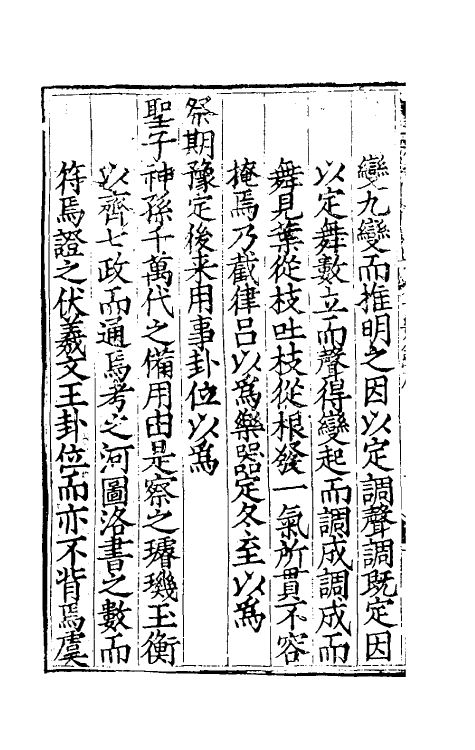 變九變而推明之因以定調聲調既定因
以定舞數立而聲得變起而調成調成而
舞見葉從枝吐枝從根發一氣所貫不容
掩焉乃截律呂以爲樂器定冬至以爲
祭期豫定後来用事卦位以爲
聖子神孫千萬代之備用由是察之璿璣玉衡
以齊七政而通焉考之河圖洛書之數而
符焉證之伏羲文王卦位而亦不背焉虞